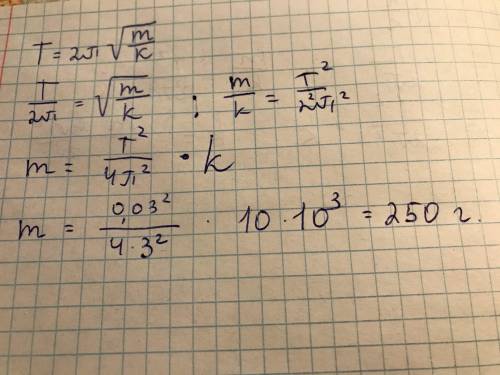 T = 2π √(m/k)
T/2π = √(m/k) ; m/k = T²/2²π²
m = T²/4π² · k
m = 0,03²/4·3² · 10 · 10³ = 250 г.